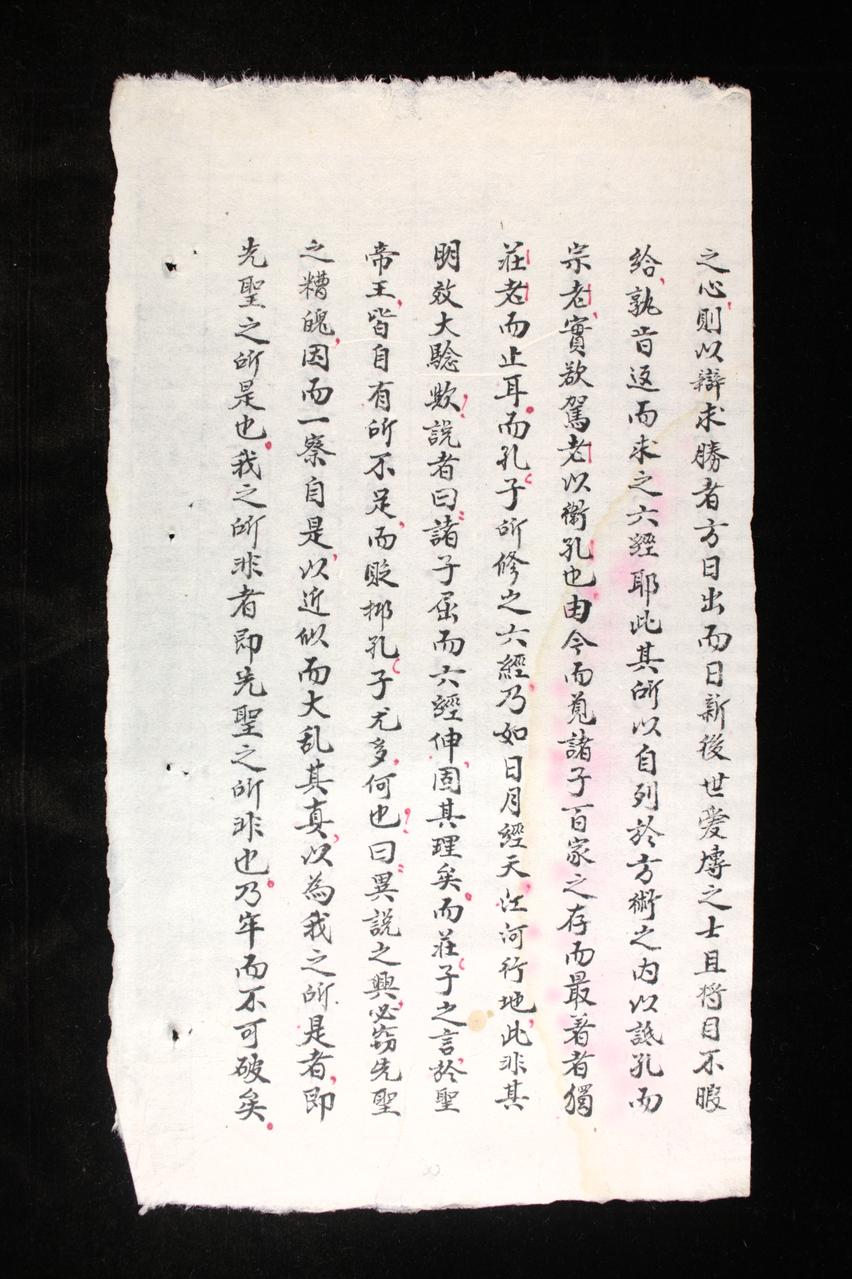 之心則以辯求勝者方日出而日新後世爱慱之士且將目不暇
給孰肯返而求之六經耶此其所以自列於方術之内以詆孔而
宗老實欲駕老以衛孔也由今而覓諸子百家之存而最著者獨
莊老而止耳而孔子所修之六經乃如日月經天江河行地此非其
明效大騐歟說者曰諸子屈而六經伸固其理矣而莊子之言於聖
帝王皆自有所不足而貶挪孔子尤多何也曰異說之興必窃先聖
之糟魄因而一察自是以近似而大乱其真以為我之所是者即
先聖之所是也我之所非者即先聖之所非也乃牢而不可破矣